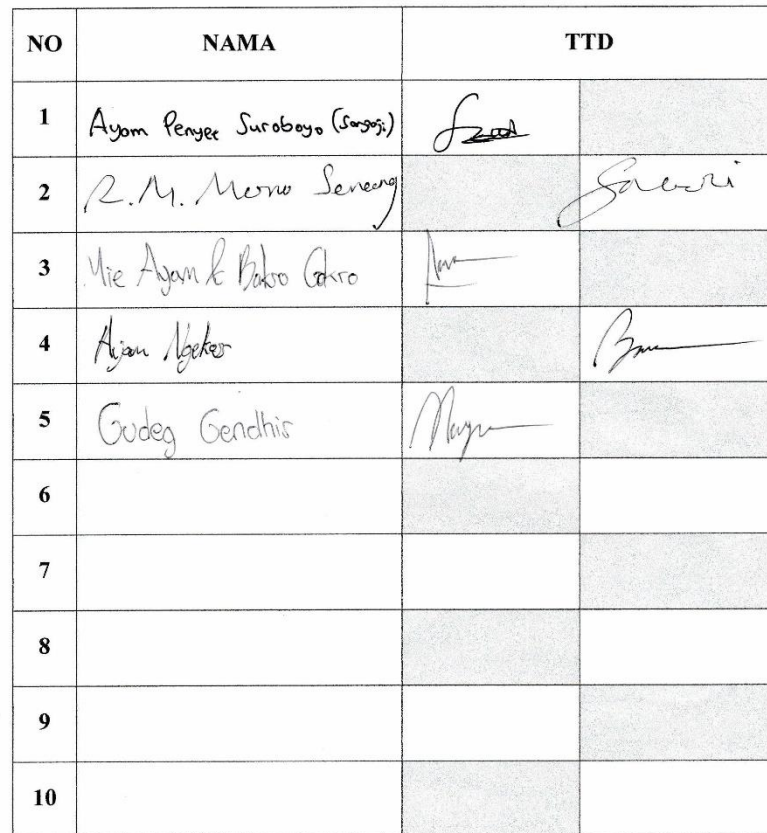 NO NAMA TTD
1 Ayam Penyet Suroboyo (Sangaji)
2 R.M. Mono Seneng
3 Mie Ayam & Bakso Cokro
4 Ayam Ngeker
5 Gudeg Gendhis
6
7
8
9
10